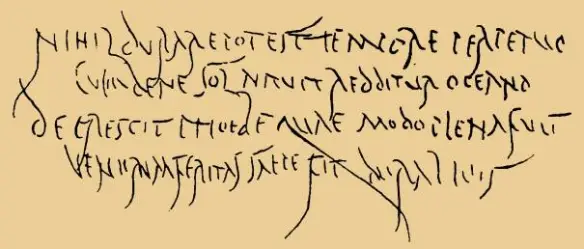 NIHIL DURARE POTEST TEMPORE PERPETUO
CUM BENE SOL NITUIT REDDITUR OCEANO
DECRESCIT PHOEBE QUAE MODO PLENA FUIT
VENTORUM FERITAS SAEPE FIT AURA LEVIS